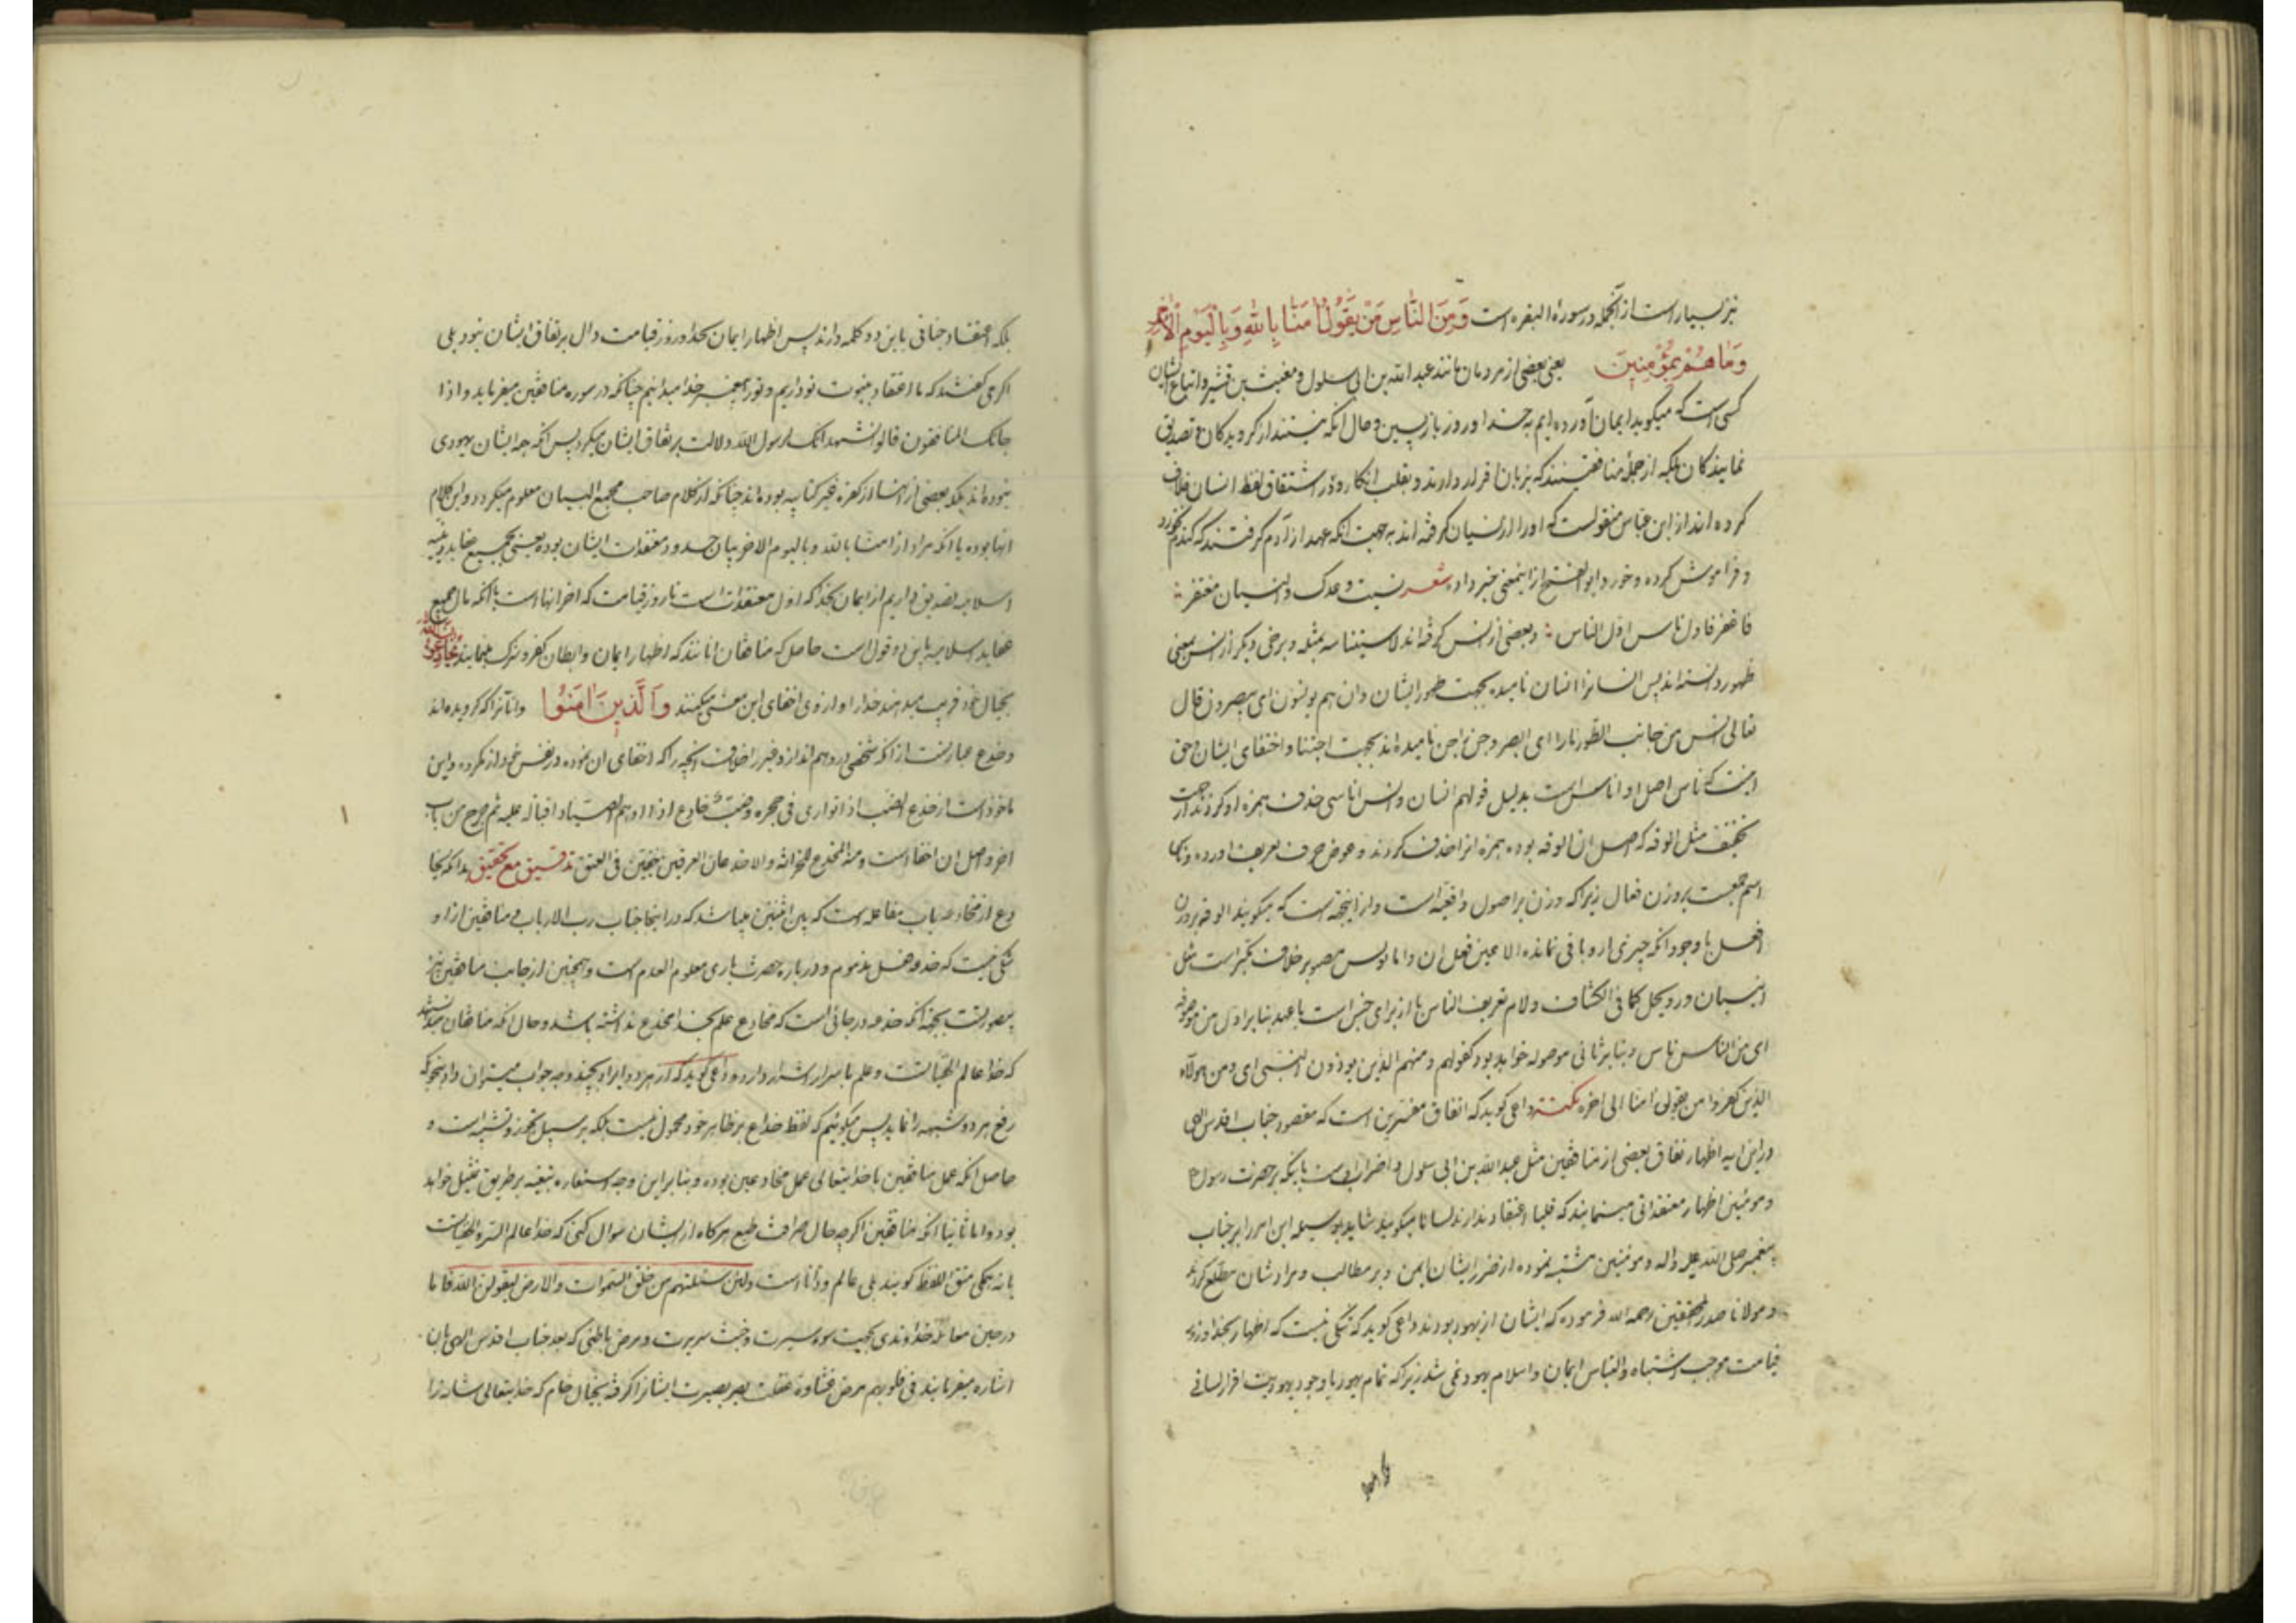 نیز بسیار است از آنجمله در سورة البقره است وَمِنَ النَّاسِ مَنْ يَقُولُ اٰمَنَّا بِاللّٰهِ وَبِالْيَوْمِ الْاٰخِرِ
وَمَا هُمْ بِمُؤْمِنِينَ یعنی بعضی از مردمان مانند عبد الله بن ابی سلول و معتب بن قشیر و اتباع ایشان
کسی است که میگوید ایمان آورده ایم به خدا و روز بازپسین و حال انکه نیستند از کرویدکان و تصدیق
نمایندکان بلکه از جملۀ منافقینند که بزبان اقرار دارند و بقلب انکار و در اشتقاق لفظ انسان خلاف
کرده اند از ابن عباس منقولست که او را از نسیان کرفته اند به جهت انکه عهد از آدم کرفتند که کندم نخورد
و فراموش کرده و خورد ابو الفتح از اینمعنی خبر داده شعر نسیت وعدک والنسیان مغتفر
فاغفر فاول ناس اول الناس و بعضی از انس کرفته اند لاستیناسه بمثله و برخی دیکر از انس بمعنی
ظهور دانسته اند پس انسانرا انسان نامیده بجهت ظهور ایشان وانهم یونسون ای یبصرون قال
تعالی انس من جانب الطور نارا ای ابصر و جن را جن نامیده اند بجهت اجتنا و اختفای ایشان و حق
اینست که ناس اصل او اناس است بدلیل قولهم انسان وانس اناسی حذف همزه او کردند از جهت
تخفیف مثل لوقه که اصل ان الوقه بوده همزه انرا حذف کردند و عوض حرف تعریف اورده و ناس
اسم جمعست بر وزن فعال زیرا که وزن بر اصول واقعست و از اینجهت است که میکویند الوقه بر وزن
افعل با وجود انکه چیزی از او باقی نمانده الا عین فعل ان واما نویس مصغر بر خلاف مکبر است مثل
انیسیان و رویجل کما فی الکشاف و لام تعریف الناس یا از برای جنس است یا عهد بنابر اول من موصوفه
ای من الناس ناس و بنابر ثانی موصوله خواهد بود کقولهم ومنهم الذین یوذون النبی ای ومن هولاء
الذین کفروا من یقول امنا الی اخره نکتة داعی کوید که اتفاق مفسرین است که مقصود جناب اقدس الهی
در این ایه اظهار نفاق بعضی از منافقین مثل عبد الله بن ابی سلول و اضراب اوست باینکه بر حضرت رسول
و مومنین اظهار معتقداتی مینمایند که قلبا اعتقاد ندارند لسانا میکویند شاید بوسیله این امر را بر جناب
پیغمبر صلی الله علیه واله و مومنین مشتبه نموده از ضرر ایشان ایمن و بر مطالب و مرادشان مطلع کردند
و مولانا صدر المحققین رحمه الله فرموده که ایشان از یهود بودند داعی کوید که شکی نیست که اظهار بخدا و روز
قیامت موجب اشتباه والتباس ایمان و اسلام یهود نمی شد زیرا که تمام یهود با وجود یهودیت اقرار لسانی
بلکه اعتقاد جنانی باین دو کلمه دارند پس اظهار ایمان بخدا و روز قیامت دال بر نفاق ایشان نبود بلی
اکر می کفتند که ما اعتقاد بنبوت تو داریم و تو را پیغمبر خدا میدانیم چنانکه در سوره منافقین میفرماید واذا
جائک المنافقون قالوا نشهد انک لرسول الله دلالت بر نفاق ایشان میکرد پس انکه چه ایشان یهودی
نبوده اند بلکه بعضی از ایشان از کفره غیر کتابیه بوده اند چنانکه از کلام صاحب مجمع البیان معلوم میکردد و این کلام
انها بوده یا انکه مراد از امنا بالله و بالیوم الاخر بیان حدود معتقدات ایشان بوده یعنی بجمیع عقاید دینیه
اسلامیه تصدیق داریم از ایمان بخدا که اول معتقدات است تا روز قیامت که اخر انهاست یا انکه مال جمیع
عقاید اسلامیه باین دو قول است حاصل که منافقان انانند که اظهار ایمان و ابطان کفر و شرک مینمایند يُخَادِعُونَ اللّٰهَ
بخیال خود فریب میدهند خدا را و از وی اخفای این معنی میکنند وَالَّذِينَ اٰمَنُوا و انانرا که کرویده اند
و خدع عبارتست از انکه شخصی در وهم اندازد غیر را خلاف انچه را که اخفای ان نموده در نفس خود از مکروه و این
ماخوذ است از خدع الضب اذا تواری فی جحره وضب خادع اذا اوهم الصیاد اقباله علیه ثم خرج من باب
اخر و اصل ان اخفا است ومنه المخدع للخزانه والاخدعان العرقین خفیین فی العنق تدقیق مع تحقیق بدانکه یخا
دع از مخادعه باب مفاعله است که بین اثنین میباشد که در اینجا جناب رب الارباب و منافقین از او
شکی نیست که خدعه فعل مذموم و درباره حضرت باری معلوم العدم است و همچنین از جانب منافقین نیز
متصور نیست بجهة انکه خدعه در جائی است که مخادع علم بخداع مخدع نداشته باشد و حال انکه منافقان میدانستند
که خدا عالم الخفیات است و علم باسرار اشرار دارد و داعی کوید که از هر دو ایراد بچند وجه جواب میتوان داد بنحویکه
رفع هر دو شبهه را نماید پس میکوئیم که لفظ خداع بر ظاهر خود محمول نیست بلکه بر سبیل تجوز و تشبیه است و
حاصل انکه عمل منافقین با خدایتعالی عمل مخادعین بوده و بنابراین وجه استعاره تبعیه بر طریق تمثیل خواهد
بود و اما ثانیا انکه منافقین اکر چه حال صرافت طبع هرکاه از ایشان سوال کنی که خدا عالم السر والخفیات است
یا نه همکی متفق اللفظ کویند بلی عالم و داناست ولئن سئلتهم من خلق السموات والارض لیقولن الله فاما
در حین معامله خداوندی بجهت سوء سیرت و خبث سریرت و مرض باطنی که بعد جناب اقدس الهی بان
اشاره میفرمایند فی قلوبهم مرض غشاوه غفلت بصر بصیرت ایشانرا کرفته بخیال خام که خدایتعالی شانه را